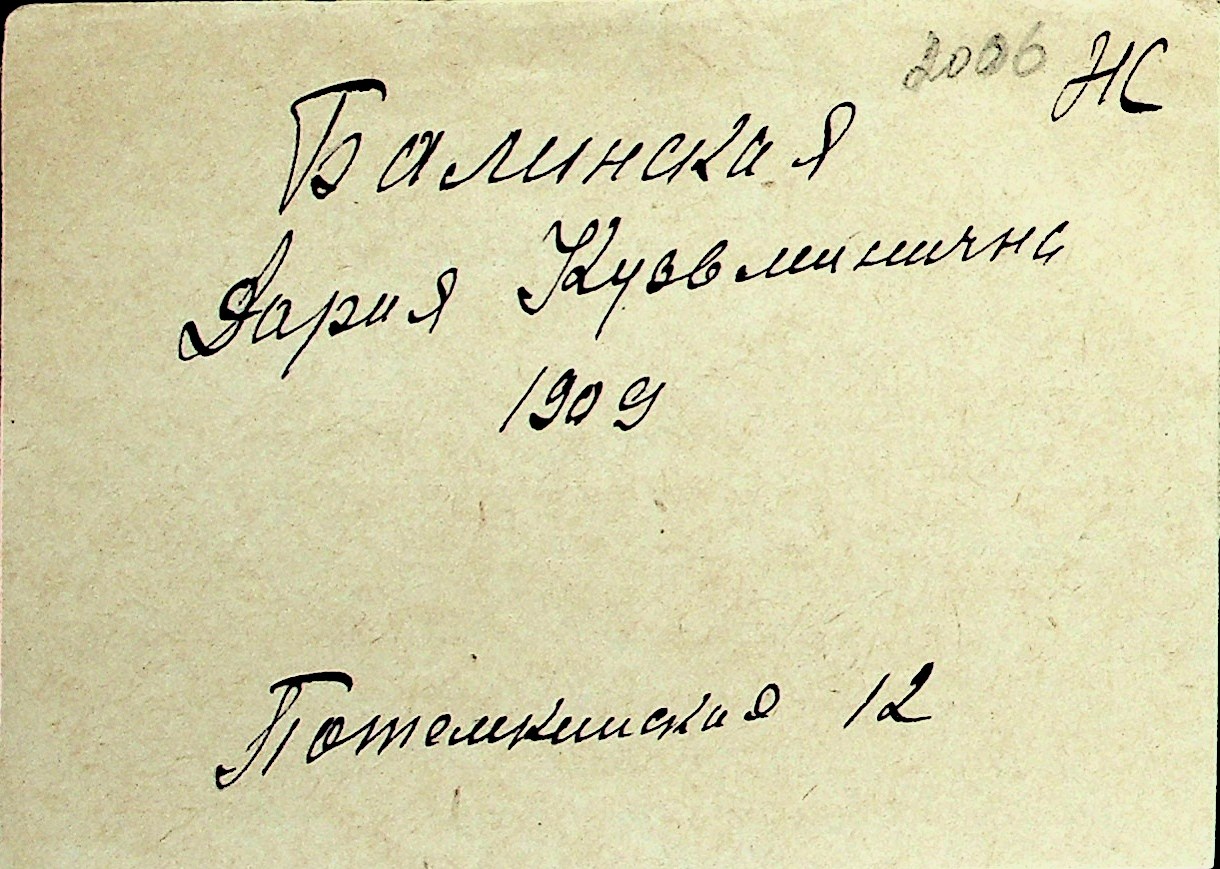 2006 НС
Балинская
Дария Кузьминична
1909
Потемкинская 12